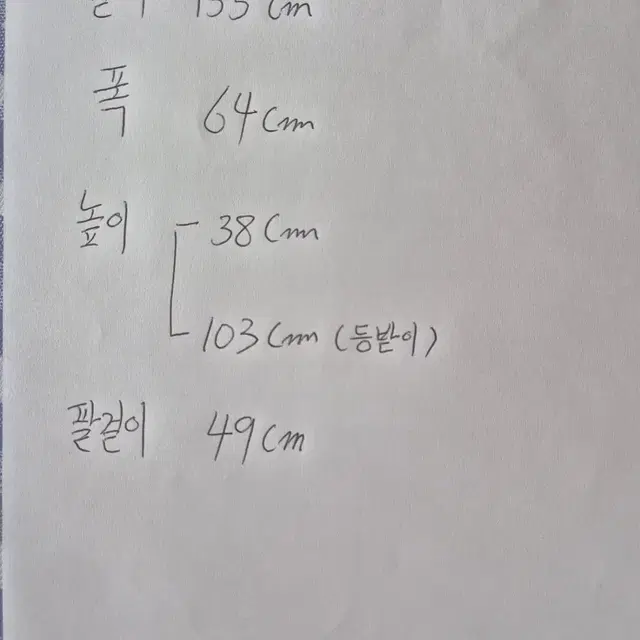 155 cm
폭 64 cm
높이 38 cm
103 cm (등받이)
팔걸이 49 cm